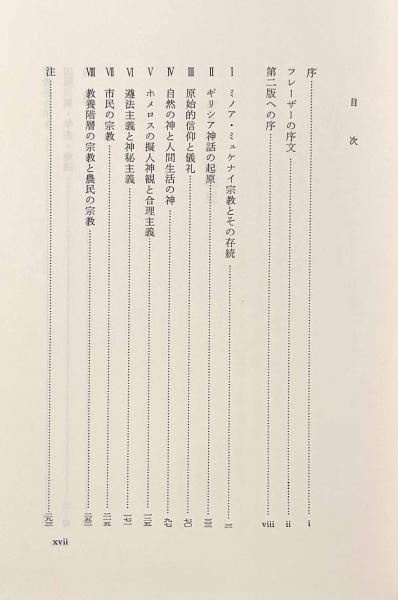 目次
序 i
フレーザーの序文 ii
第二版への序 viii
I ミノア・ミュケナイ宗教とその存続
II ギリシア神話の起原
III 原始的信仰と儀礼 七〇
IV 自然の神と人間生活の神 九七
V ホメロスの擬人神観と合理主義
VI 遵法主義と神秘主義
VII 市民の宗教
VIII 教養階層の宗教と農民の宗教
注
xvii